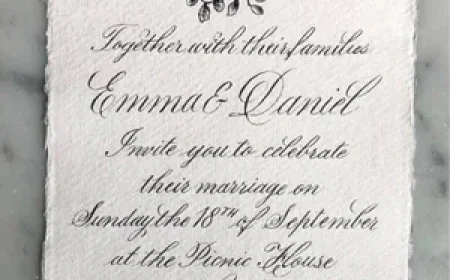 Together with their families
Emma & Daniel
Invite you to celebrate
their marriage on
Sunday the 18TH of September
at the Picnic House